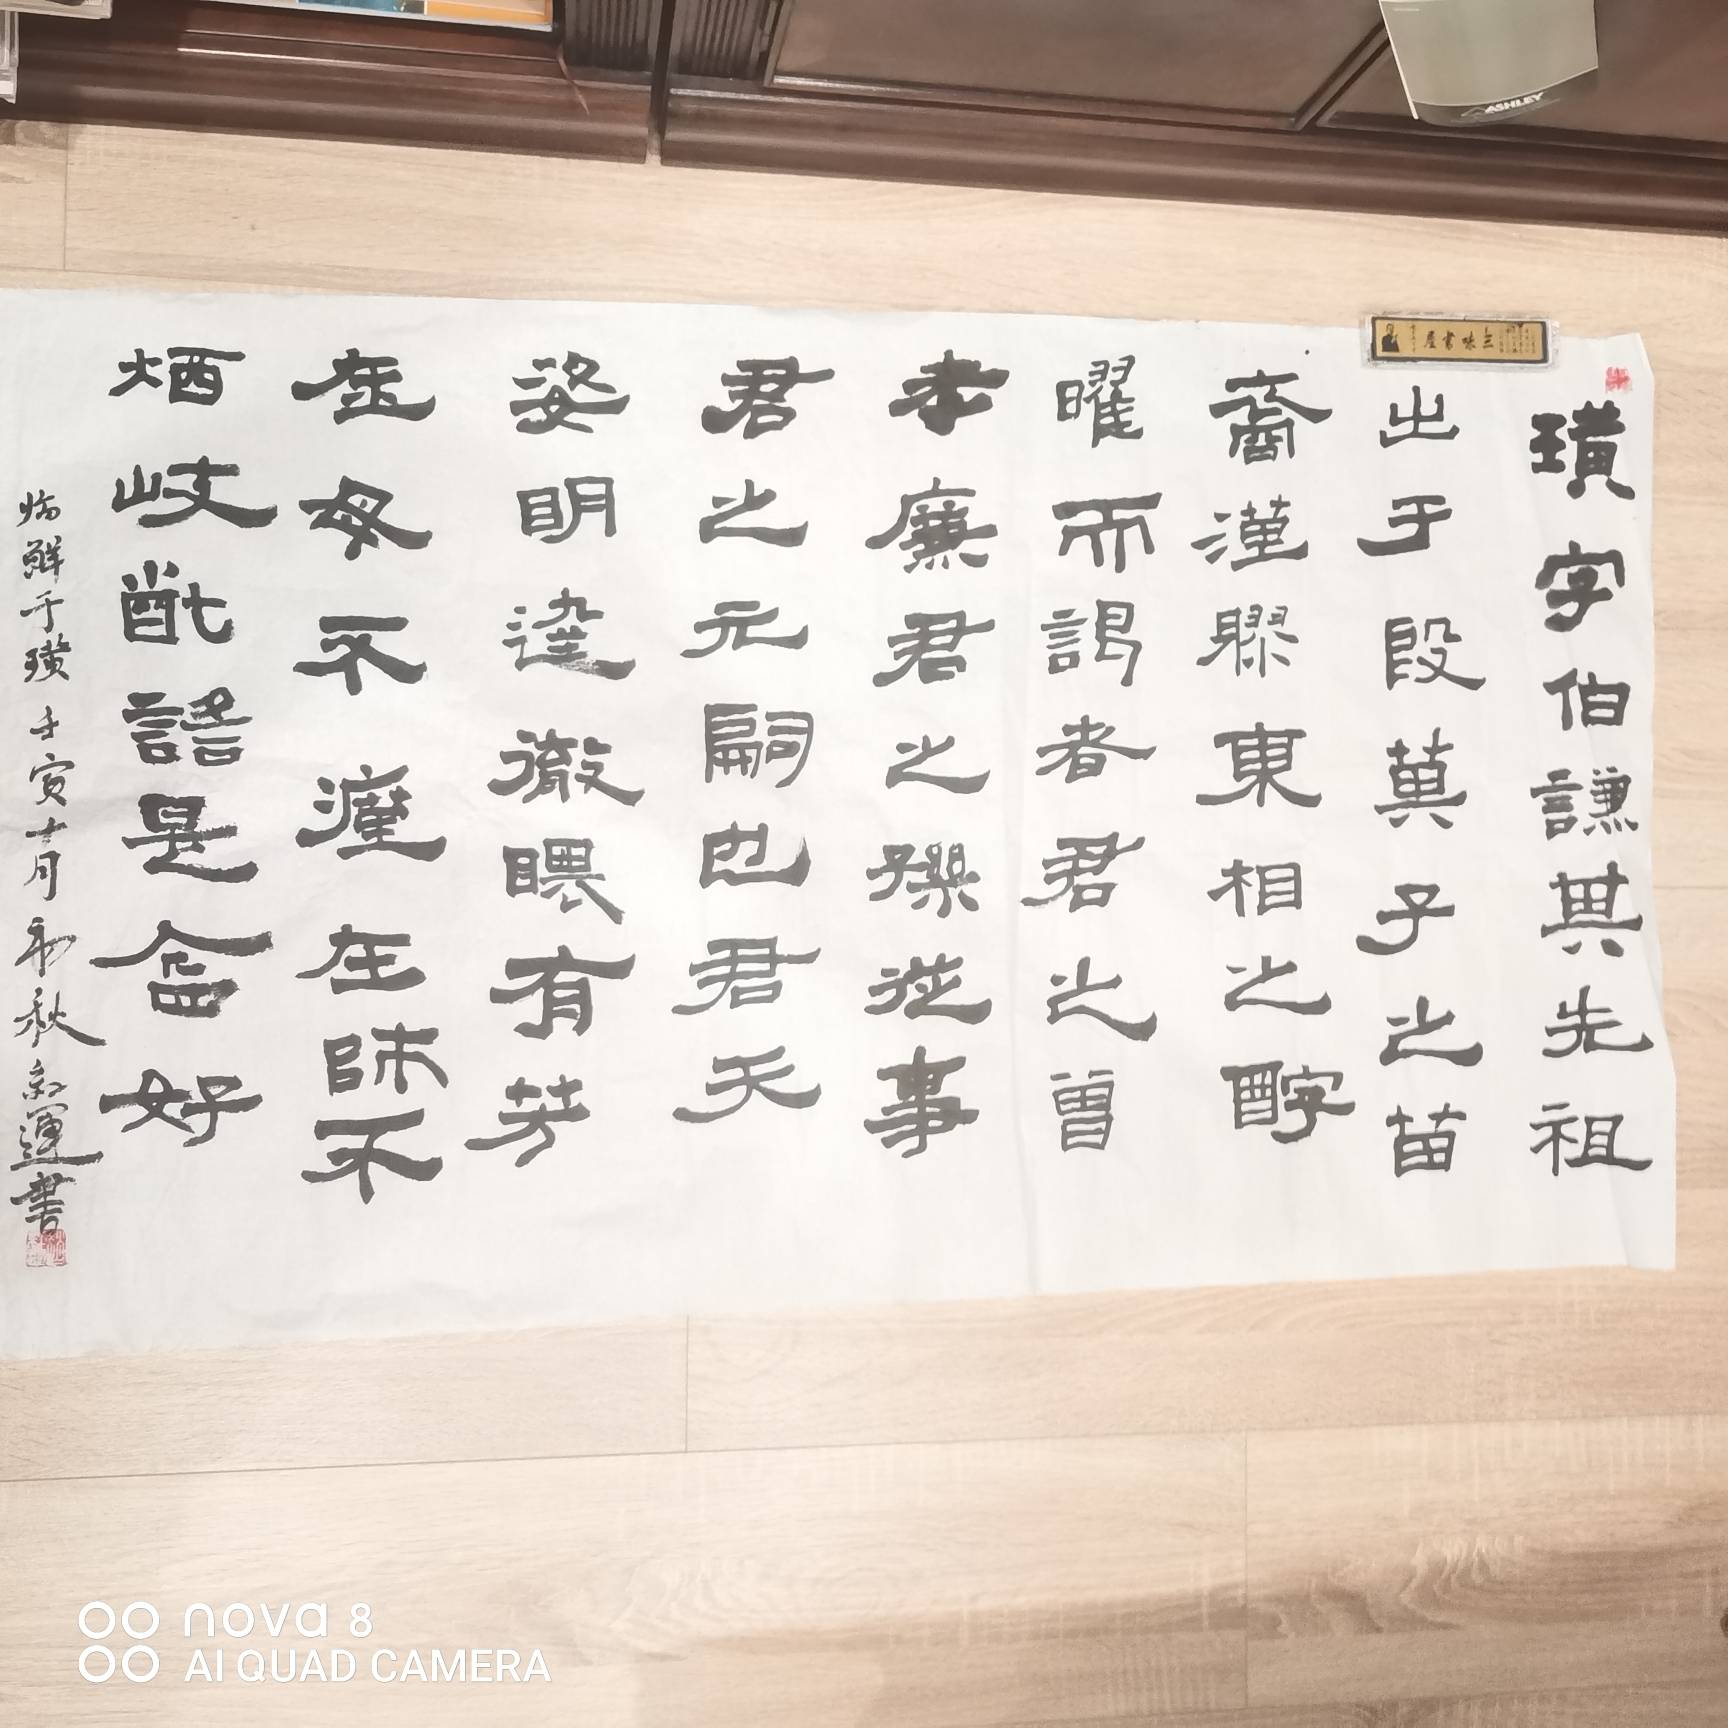 璜字伯謙其先祖
出于殷萁子之苗
裔漢膠東相之醇
曜而謁者君之曾
孝廉君之孫從事
君之元嗣也君天
姿明達徹睱有芳
在母不㾏在師不
烦岐嶷語是含好
临鲜于璜 壬寅十月 初秋 運書
三味書屋
ASHLEY
nova 8
AI QUAD CAMERA